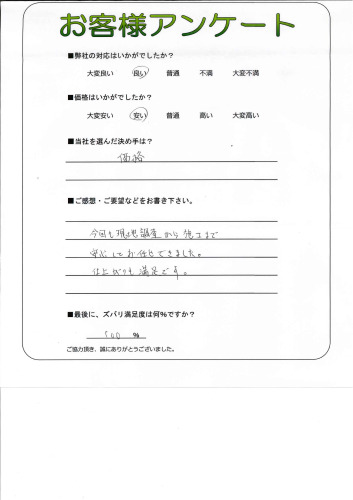 お客様アンケート
■弊社の対応はいかがでしたか？
大変良い 良い 普通 不満 大変不満
■価格はいかがでしたか？
大変安い 安い 普通 高い 大変高い
■当社を選んだ決め手は？
価格
■ご感想・ご要望などをお書き下さい。
今回も現地調査から施工まで
安心してお任せできました。
仕上がりも満足です。
■最後に、ズバリ満足度は何%ですか？
100 %
ご協力頂き、誠にありがとうございました。